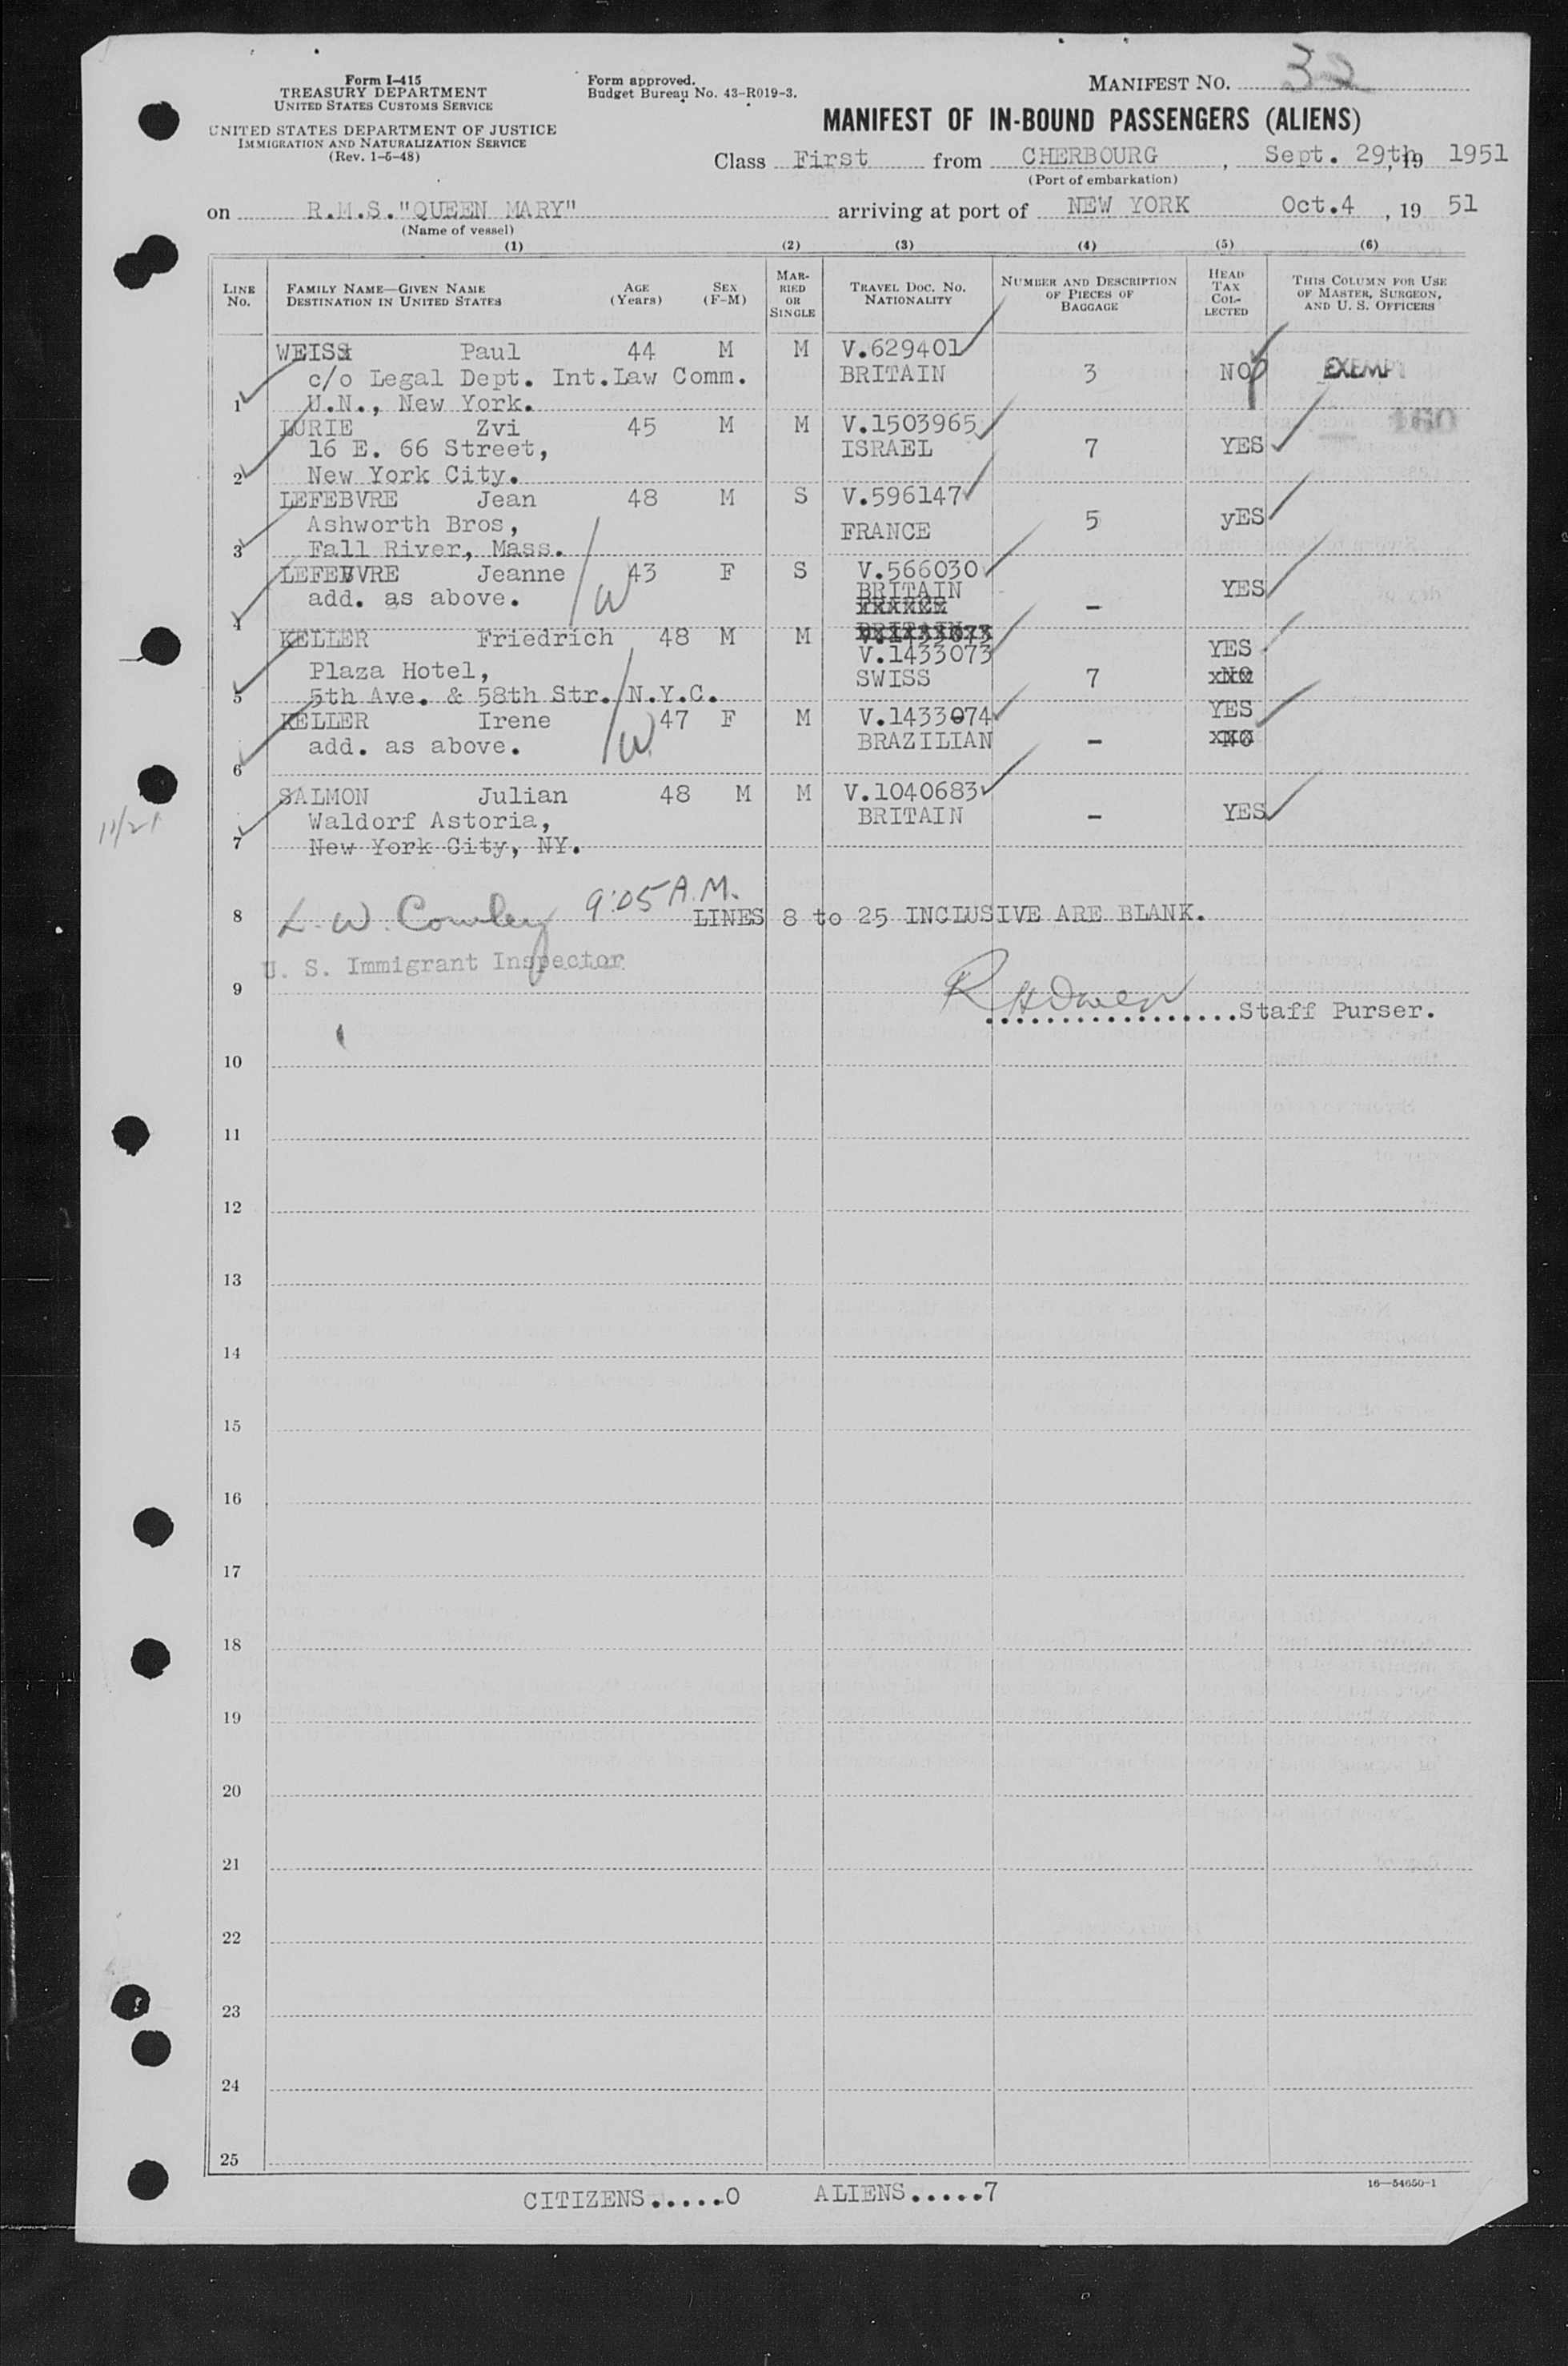 Form I-415
TREASURY DEPARTMENT
UNITED STATES CUSTOMS SERVICE
UNITED STATES DEPARTMENT OF JUSTICE
IMMIGRATION AND NATURALIZATION SERVICE
(Rev. 1-5-48)
Form approved.
Budget Bureau No. 43-R019-3.
MANIFEST NO. 32
MANIFEST OF IN-BOUND PASSENGERS (ALIENS)
Class First from CHERBOURG, Sept. 29th, 19 1951
(Port of embarkation)
on R.M.S."QUEEN MARY" arriving at port of NEW YORK Oct.4, 19 51
(Name of vessel)
(1) (2) (3) (4) (5) (6)
LINE No. FAMILY NAME—GIVEN NAME DESTINATION IN UNITED STATES AGE (Years) SEX (F-M) MARRIED OR SINGLE TRAVEL DOC. NO. NATIONALITY NUMBER AND DESCRIPTION OF PIECES OF BAGGAGE HEAD TAX COLLECTED THIS COLUMN FOR USE OF MASTER, SURGEON, AND U. S. OFFICERS
WEISS Paul 44 M M V.629401
c/o Legal Dept. Int.Law Comm. BRITAIN 3 NO EXEMPT
1 U.N., New York.
LURIE Zvi 45 M M V.1503965
16 E. 66 Street, ISRAEL 7 YES
2 New York City.
LEFEBVRE Jean 48 M S V.596147
Ashworth Bros, FRANCE 5 yES
3 Fall River, Mass.
LEFEBVRE Jeanne 43 F S V.566030
add. as above. W BRITAIN - YES
4
KELLER Friedrich 48 M M V.1433073
Plaza Hotel, SWISS 7 YES NO
5 5th Ave. & 58th Str. N.Y.C.
KELLER Irene 47 F M V.1433074 YES
add. as above. W BRAZILIAN - NO
6
SALMON Julian 48 M M V.1040683
Waldorf Astoria, BRITAIN - YES
11/21
7 New York City, NY.
8 L. W. Cowley 9:05 A.M. LINES 8 to 25 INCLUSIVE ARE BLANK.
U. S. Immigrant Inspector
9 R H Owen Staff Purser.
10
11
12
13
14
15
16
17
18
19
20
21
22
23
24
25
16—54650-1
CITIZENS.....0 ALIENS.....7